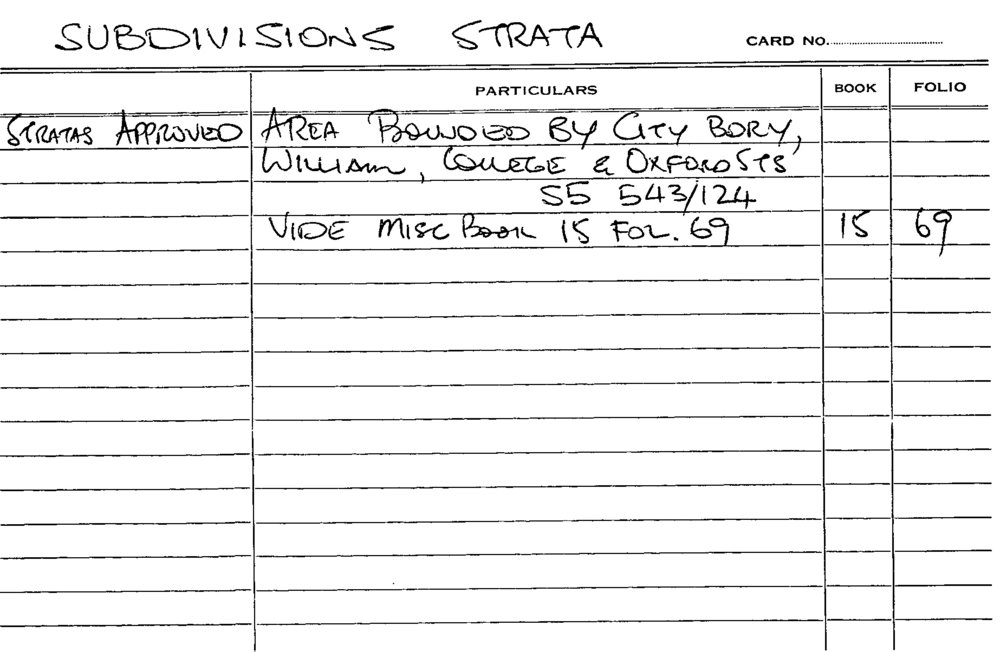 SUBDIVISIONS STRATA CARD NO.
PARTICULARS BOOK FOLIO
STRATAS APPROVED AREA BOUNDED BY CITY BDRY,
WILLIAM, COLLEGE & OXFORD STS
S5 543/124
VIDE MISC BOOK 15 FOL. 69 15 69